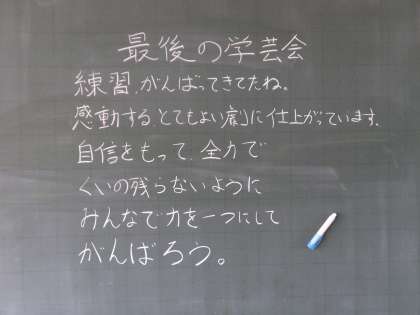 最後の学芸会
練習、がんばってきてたね。
感動する、とてもよい劇に仕上がっています。
自信をもって、全力で
くいの残らないように
みんなで力を一つにして
がんばろう。